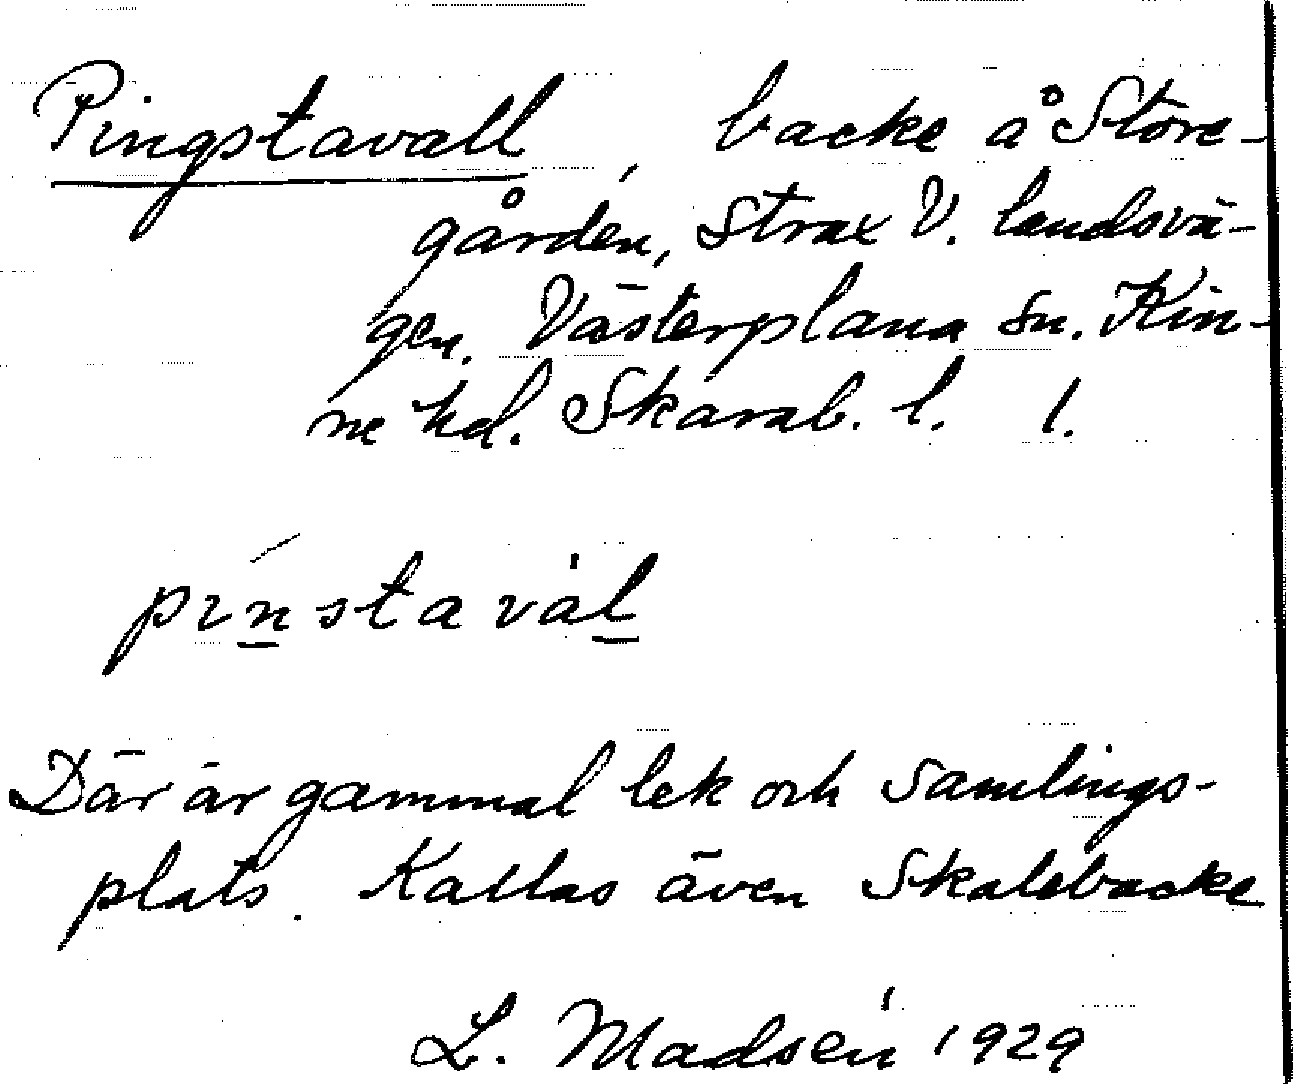 Pingstavall, backe å Store-
gården, strax V. landsvä-
gen. Västerplana sn. Kin-
ne hd. Skarab. l. 1.
pɪn̲stavàl̲
Där är gammal lek och samlings-
plats. Kallas även Skalebacke
L. Madsén 1929